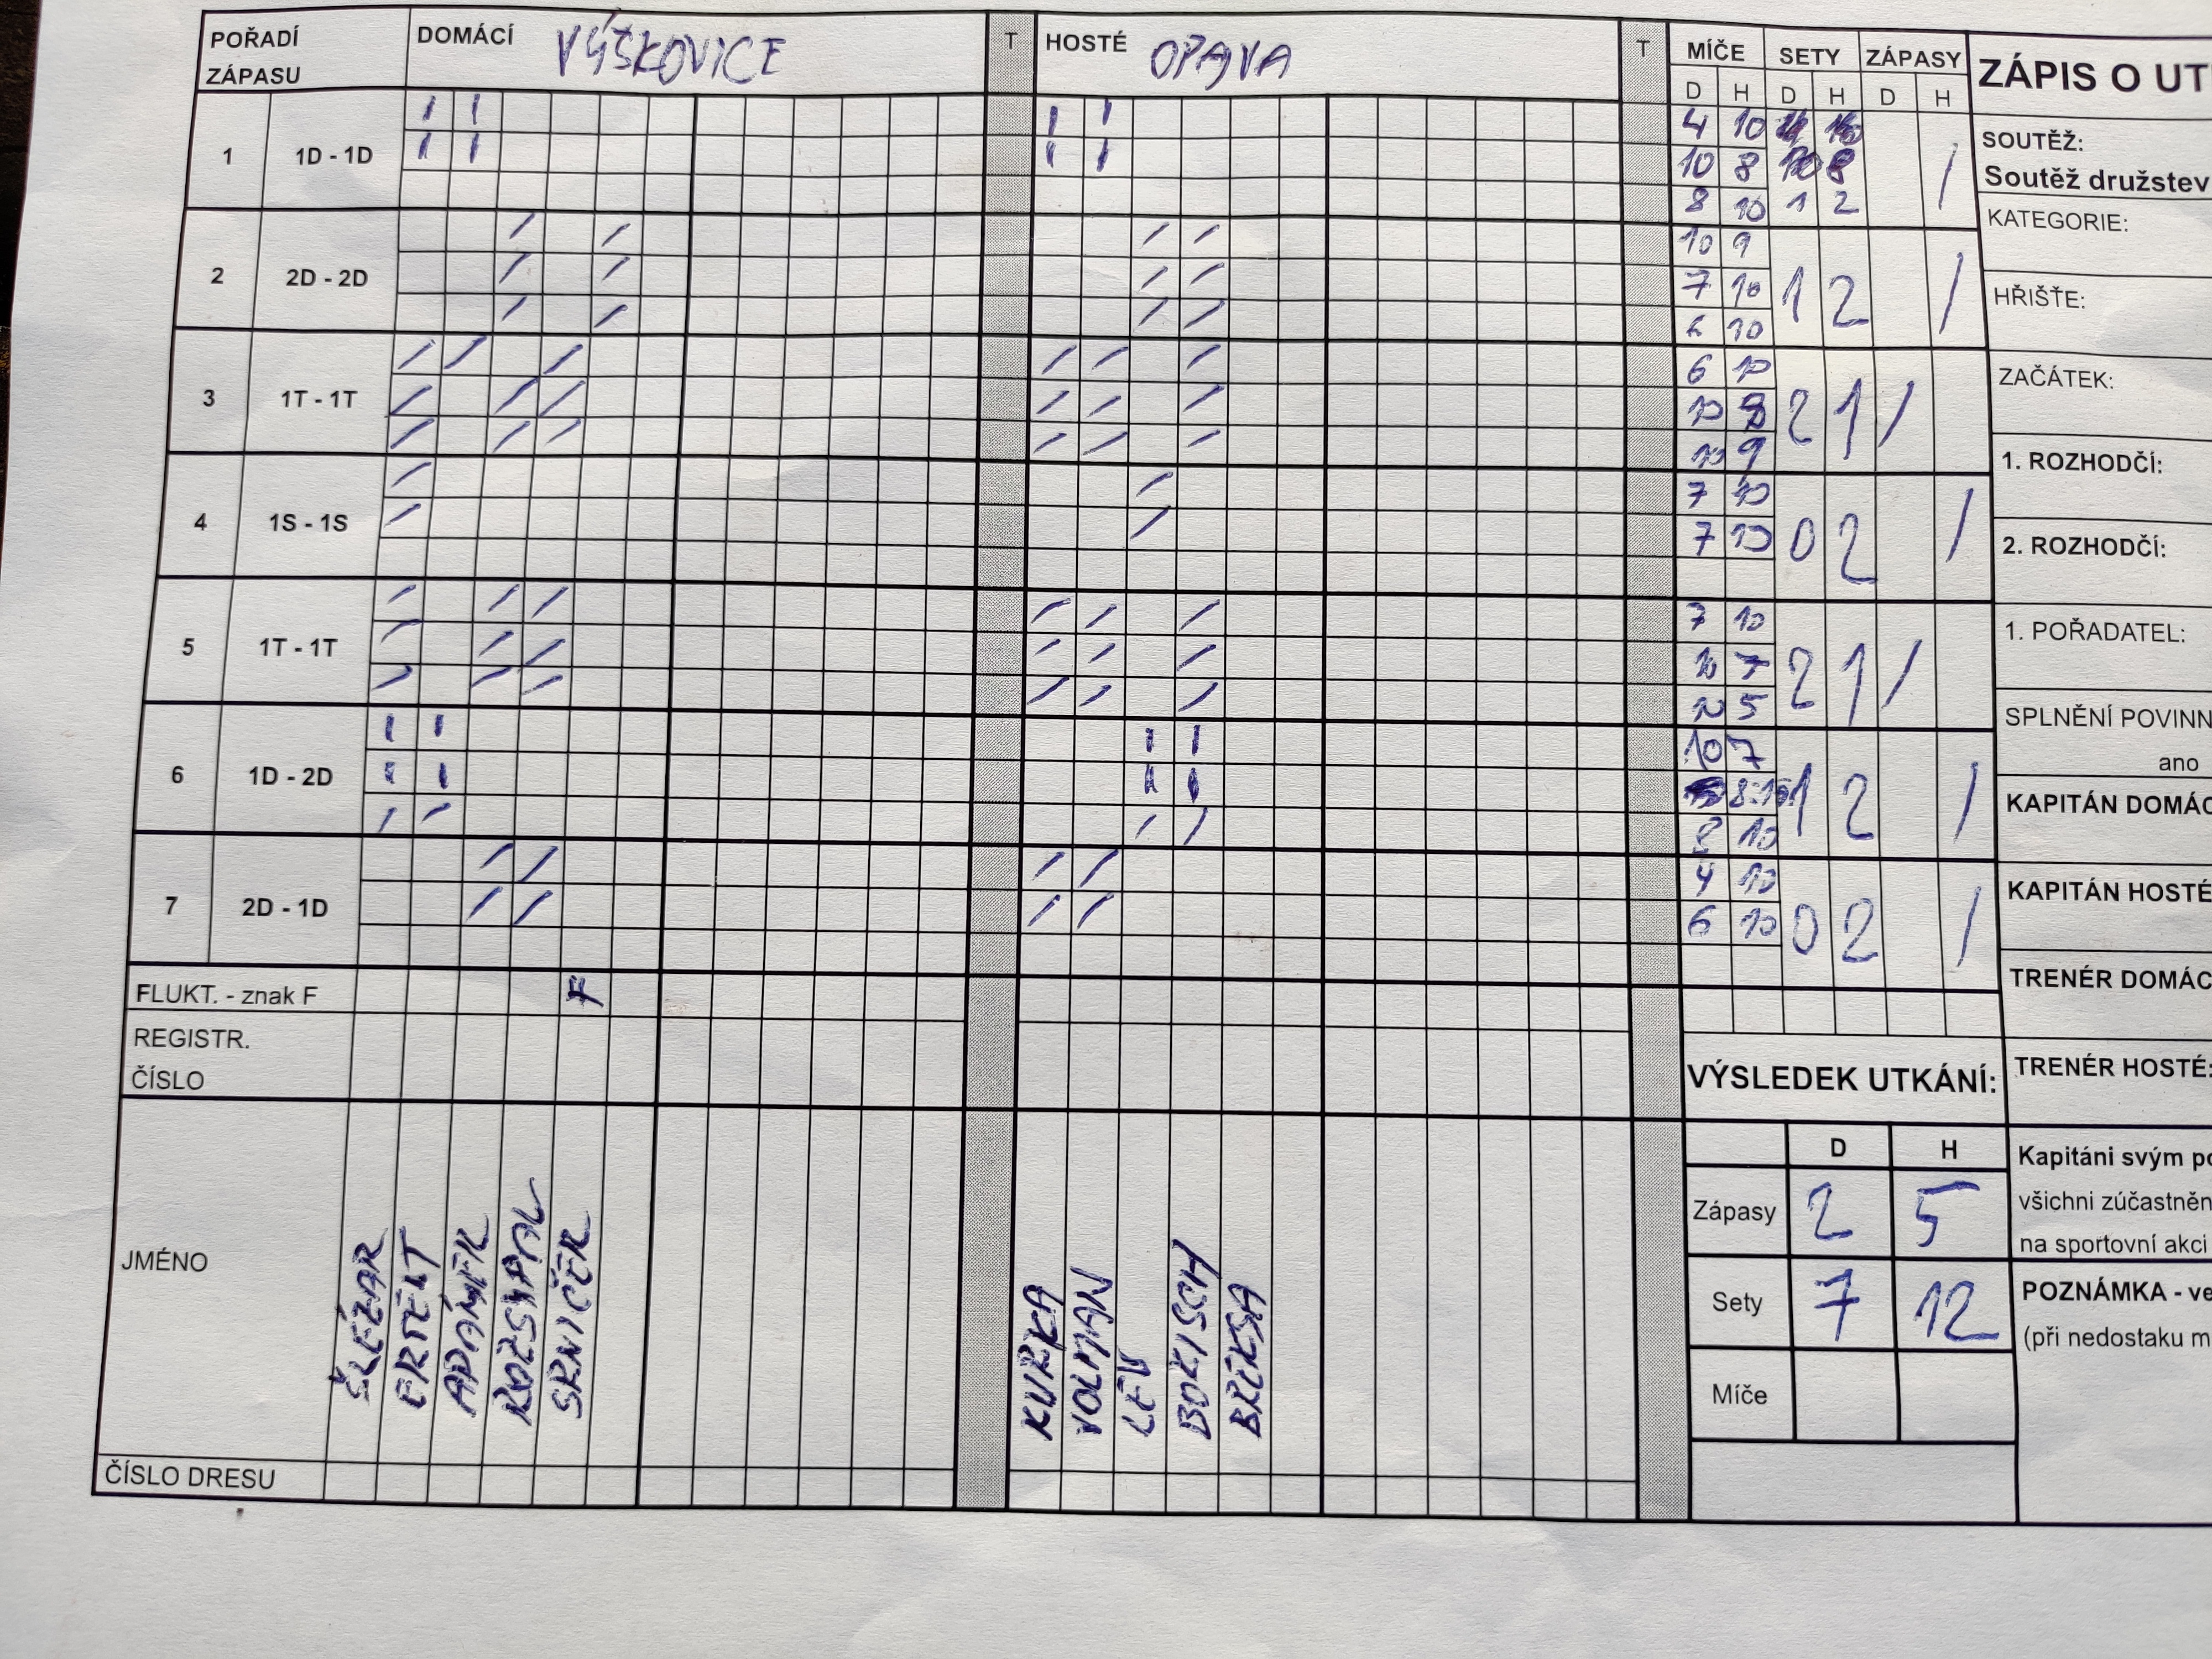 POŘADÍ ZÁPASU DOMÁCÍ VÝŠKOVICE T HOSTÉ OPAVA T MÍČE SETY ZÁPASY
D H D H D H
1 1D - 1D
4 10
10 8
8 10 1 2 /
2 2D - 2D
10 9
7 10 1 2 /
6 10
3 1T - 1T
6 10
10 8 2 1 /
10 9
4 1S - 1S
7 10
7 10 0 2 /
5 1T - 1T
7 10
10 7 2 1 /
10 5
6 1D - 2D
10 7
8:10 1 2 /
8 10
7 2D - 1D
4 10
6 10 0 2 /
FLUKT. - znak F F
REGISTR.
ČÍSLO
JMÉNO
ŠLÉZAR
ERTELT
ADÁMEK
ROZSYPAL
SRNIČEK
KUŘKA
VOLMAN
LEV
BOKISCH
ČÍSLO DRESU
VÝSLEDEK UTKÁNÍ:
D H
Zápasy 2 5
Sety 7 12
Míče
ZÁPIS O UT
SOUTĚŽ:
Soutěž družstev
KATEGORIE:
HŘIŠTE:
ZAČÁTEK:
1. ROZHODČÍ:
2. ROZHODČÍ:
1. POŘADATEL:
SPLNĚNÍ POVINN
ano
KAPITÁN DOMÁC
KAPITÁN HOSTÉ
TRENÉR DOMÁC
TRENÉR HOSTÉ:
Kapitáni svým po
všichni zúčastněn
na sportovní akci
POZNÁMKA - ve
(při nedostaku m